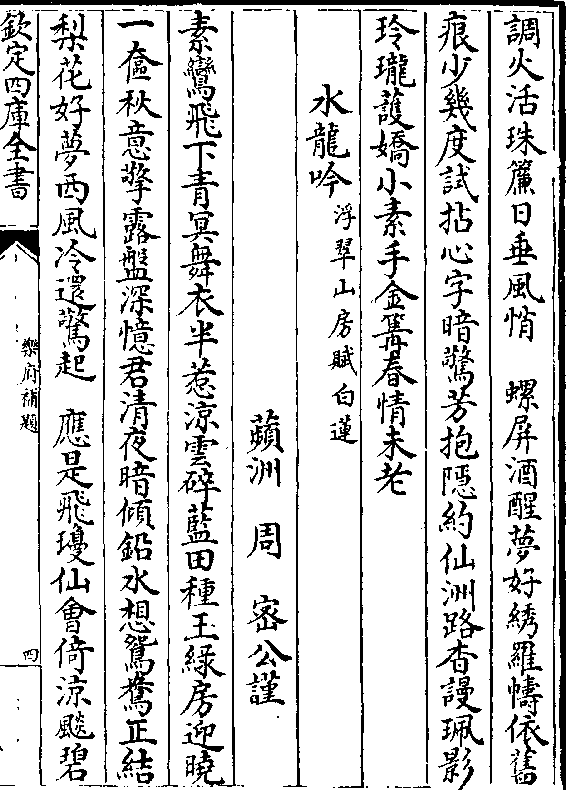 調火活珠簾日垂風悄　螺屏酒醒夢好綉羅幬依舊
痕少幾度試拈心字暗驚芳抱隱約仙洲路杳謾珮影
玲瓏護嬌小素手金篝春情未老
水龍吟浮翠山房賦白蓮
蘋洲　周　密公謹
素鸞飛下青冥舞衣半惹涼雲碎藍田種玉綠房迎曉
一奩秋意擎露盤深憶君清夜暗傾鉛水想鴛鴦正結
梨花好夢西風冷還驚起　應是飛瓊仙會倚涼飇碧
欽定四庫全書
樂府補題
四